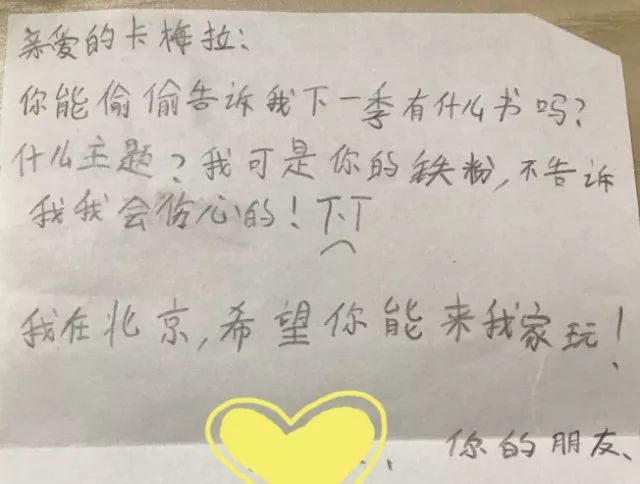 亲爱的卡梅拉:
你能偷偷告诉我下一季有什么书吗?
什么主题?我可是你的铁粉,不告诉
我我会伤心的!
我在北京,希望你能来我家玩!
你的朋友、